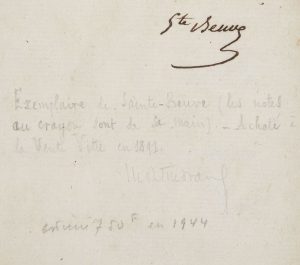 Ste Beuve
Exemplaire de Sainte-Beuve (les notes
au crayon sont de sa main). - Acheté à
la Vente
en 1892.
estimé 750f en 1944